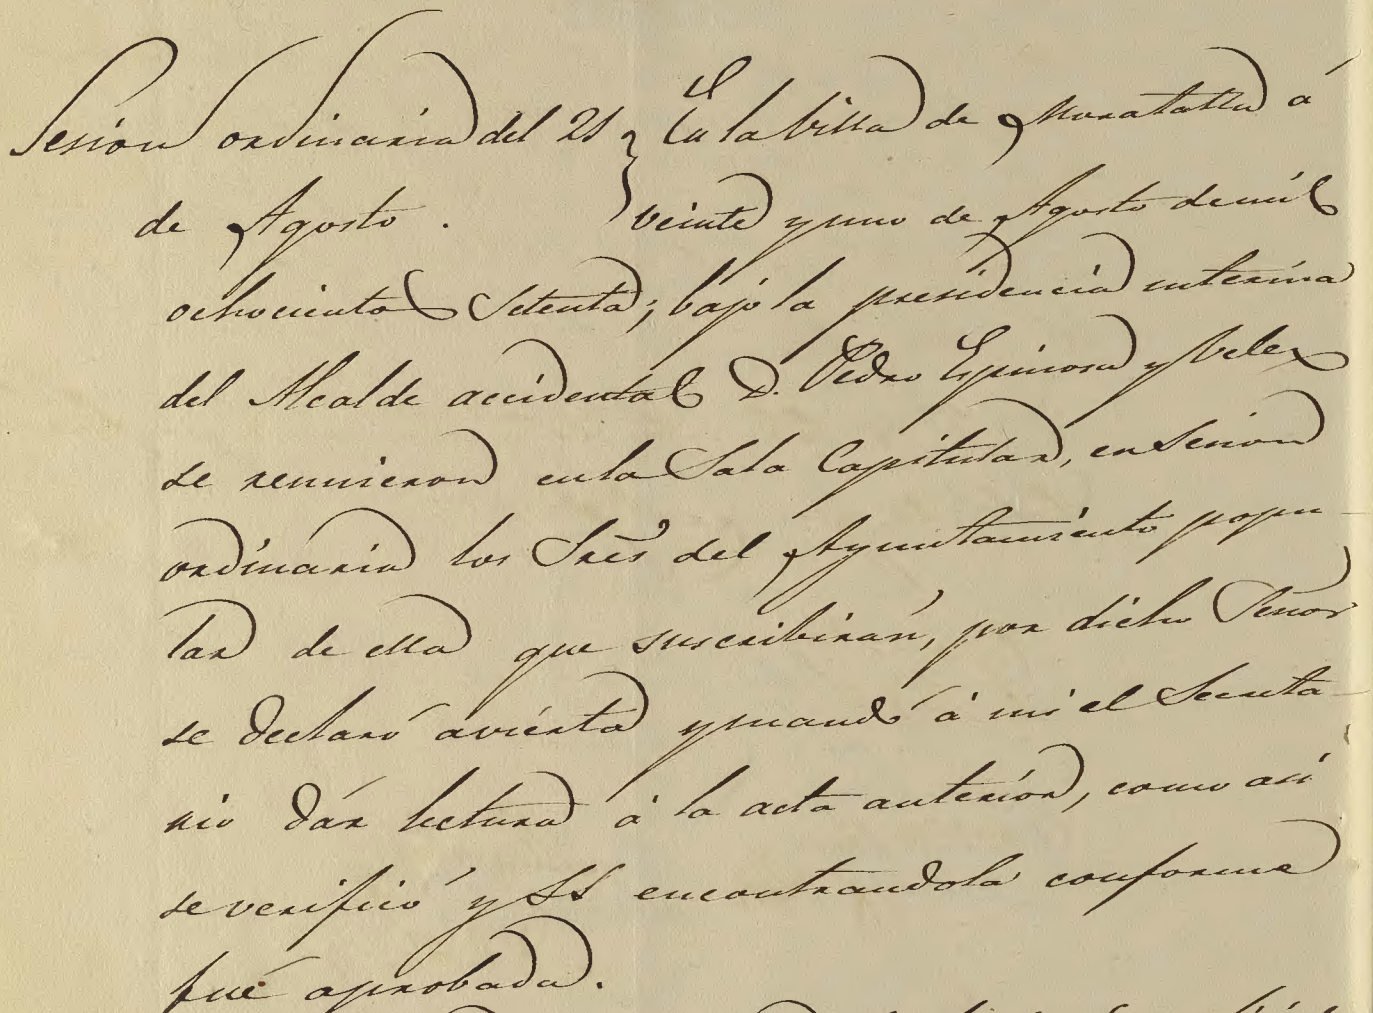 Sesion ordinaria del 21 } En la billa de Moratalla á
de Agosto. veinte y uno de Agosto de mil
ochocientos Setenta; bajo la presidencia interina
del Alcalde accidental D. Pedro Espinosa y Velez
se reunieron en la Sala Capitular, en Sesion
ordinaria los Sres del Ayuntamiento popu-
lar de ella que suscribirán, por dicho Señor
se declaró avierta y mandó á mi el Secreta-
rio dár lectura á la acta anterior, como asi
se verificó y SS encontrandola conforme
fué aprobada.